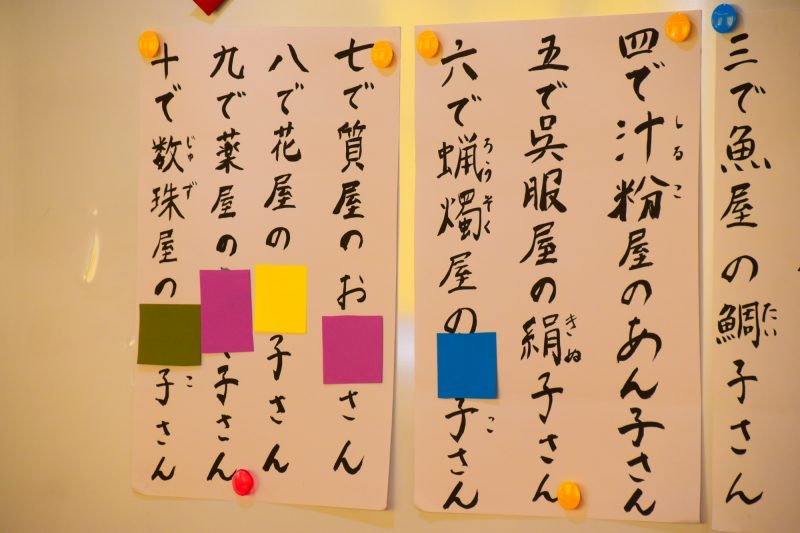 三で魚屋の鯛子さん
たい
四で汁粉屋のあん子さん
しるこ
五で呉服屋の絹子さん
きぬ
六で蝋燭屋の子さん
ろうそく
こ
七で質屋のおさん
八で花屋の子さん
九で薬屋の子さん
十で数珠屋の子さん
じゅず
こ